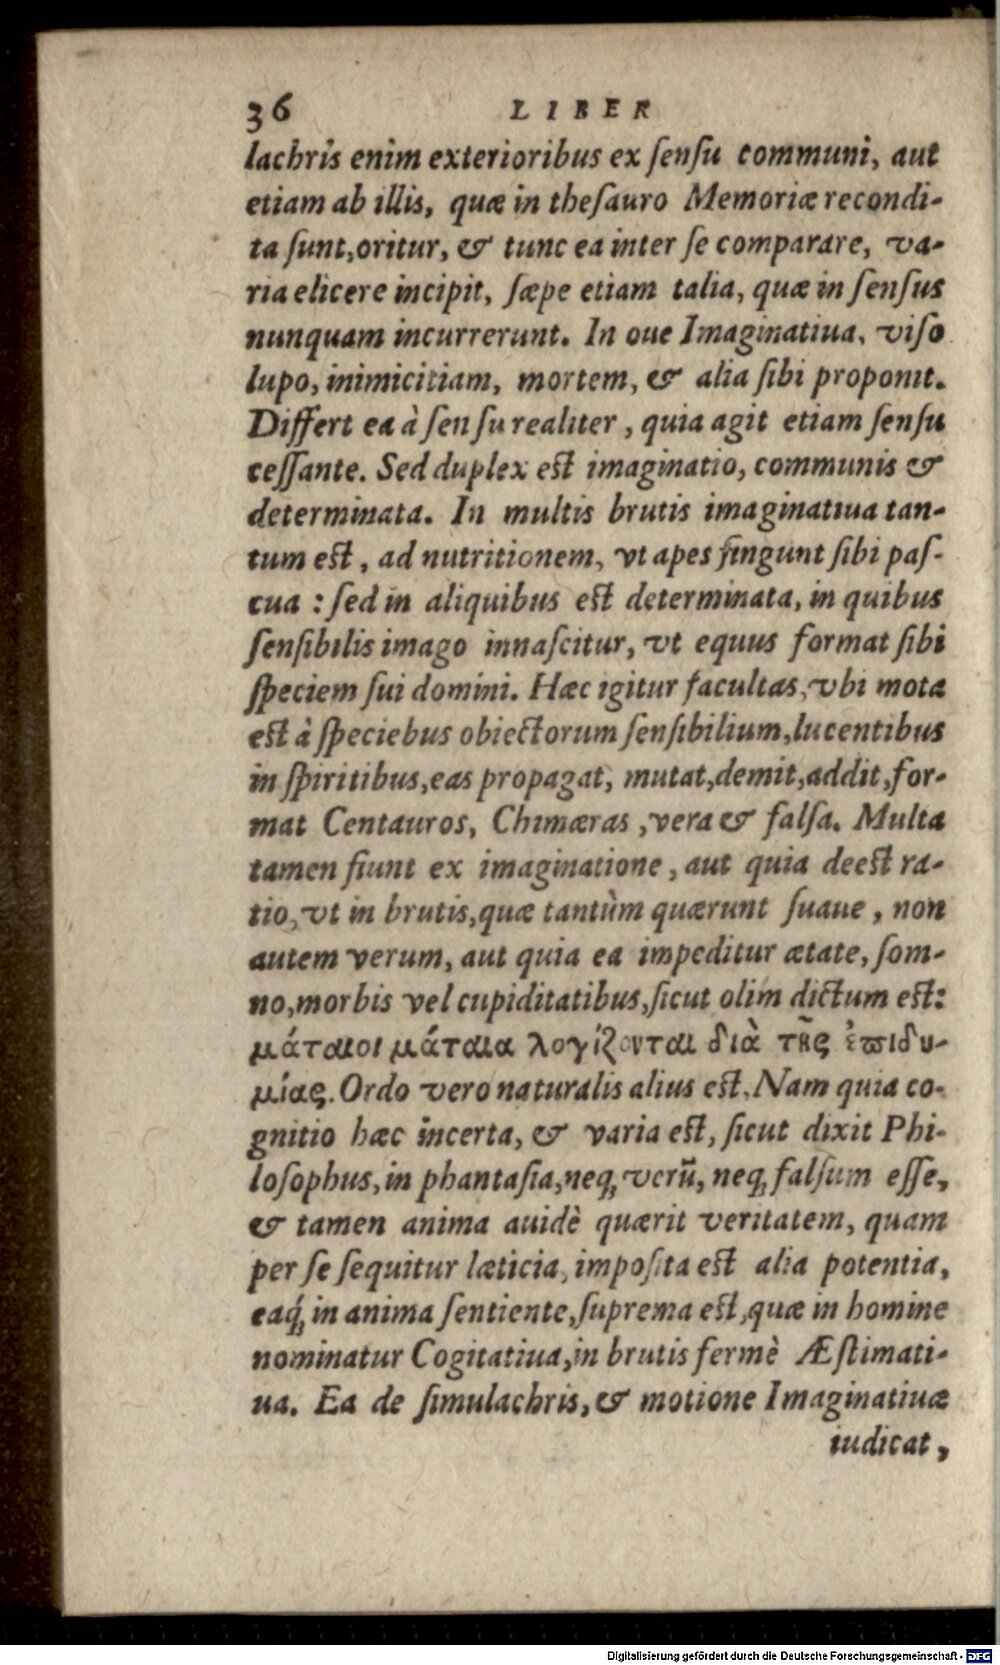 36 LIBER
lachris enim exterioribus ex ſenſu communi, aut
etiam ab illis, quæ in theſauro Memoriæ recondi-
ta ſunt,oritur, & tunc ea inter ſe comparare, va-
ria elicere incipit, ſæpe etiam talia, quæ in ſenſus
nunquam incurrerunt. In oue Imaginatiua, viſo
lupo, inimicitiam, mortem, & alia ſibi proponit.
Differt ea à ſenſu realiter, quia agit etiam ſenſu
ceſſante. Sed duplex est imaginatio, communis &
determinata. In multis brutis imaginatiua tan-
tum est, ad nutritionem, vt apes fingunt ſibi paſ-
cua : ſed in aliquibus est determinata, in quibus
ſenſibilis imago innaſcitur, vt equus format ſibi
ſpeciem ſui domini. Hæc igitur facultas, vbi mota
est à ſpeciebus obiectorum ſenſibilium,lucentibus
in ſpiritibus,eas propagat, mutat,demit,addit,for-
mat Centauros, Chimæras ,vera & falſa. Multa
tamen fiunt ex imaginatione, aut quia deest ra-
tio, vt in brutis,quæ tantùm quærunt ſuaue, non
autem verum, aut quia ea impeditur ætate, ſom-
no,morbis vel cupiditatibus,ſicut olim dictum est:
μάταιοι μάταια λογίζονται διὰ τῆς ἐπιδυ-
μίας. Ordo vero naturalis alius est. Nam quia co-
gnitio hæc incerta, & varia est, ſicut dixit Phi-
loſophus, in phantaſia,neq; verū, neq; falſum eſſe,
& tamen anima auidè quærit veritatem, quam
per ſe ſequitur læticia, impoſita est alia potentia,
eaq́; in anima ſentiente,ſuprema est,quæ in homine
nominatur Cogitatiua,in brutis fermè Æſtimati-
ua. Ea de ſimulachris, & motione Imaginatiuæ
iudicat,
Digitalisierung gefördert durch die Deutsche Forschungsgemeinschaft - DFG